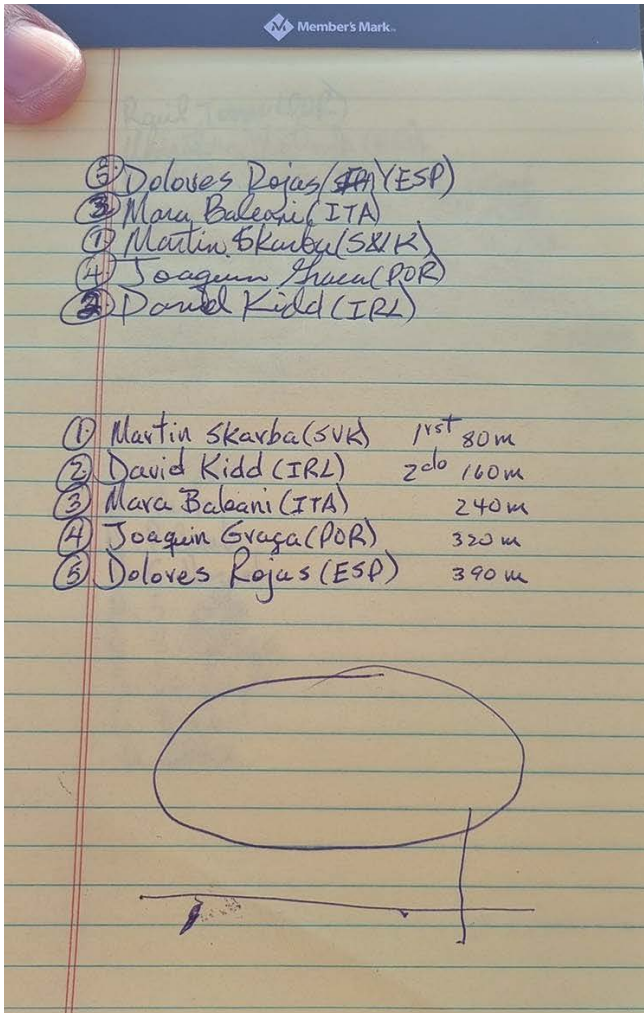 Member's Mark
⑤ Dolores Rojas (ESP)
③ Mara Baleani (ITA)
① Martin Skarba (SVK)
④ Joaquin Graca (POR)
② David Kidd (IRL)
① Martin Skarba (SVK) 1rst 80m
② David Kidd (IRL) 2do 160m
③ Mara Baleani (ITA) 240m
④ Joaquin Graça (POR) 320m
⑤ Dolores Rojas (ESP) 390m